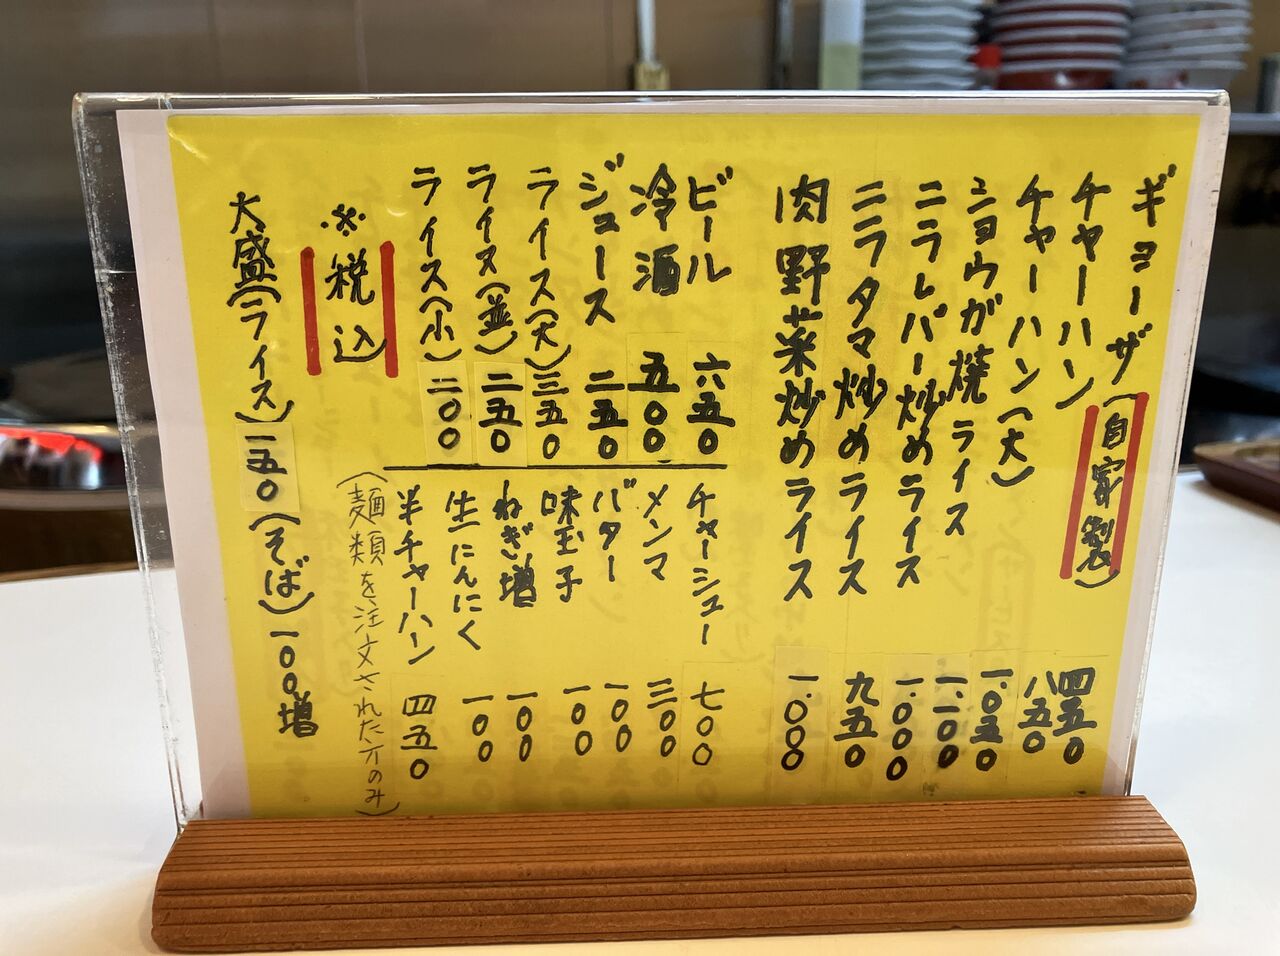 ギョーザ(自家製) 四五〇
チャーハン 八五〇
チャーハン(大) 一.〇五〇
ショウガ焼ライス 一.一〇〇
ニラレバー炒めライス 一.〇〇〇
ニラタマ炒めライス 九五〇
肉野菜炒めライス 一.〇〇〇
ビール 六五〇
冷酒 五〇〇
ジュース 二五〇
ライス(大) 三五〇
ライス(並) 二五〇
ライス(小) 二〇〇
チャーシュー 七〇〇
メンマ 三〇〇
バター 一〇〇
味玉子 一〇〇
ねぎ増 一〇〇
生にんにく 一〇〇
半チャーハン 四五〇
(麺類を注文された方のみ)
※税込
大盛(ライス)一五〇(そば)一〇〇増